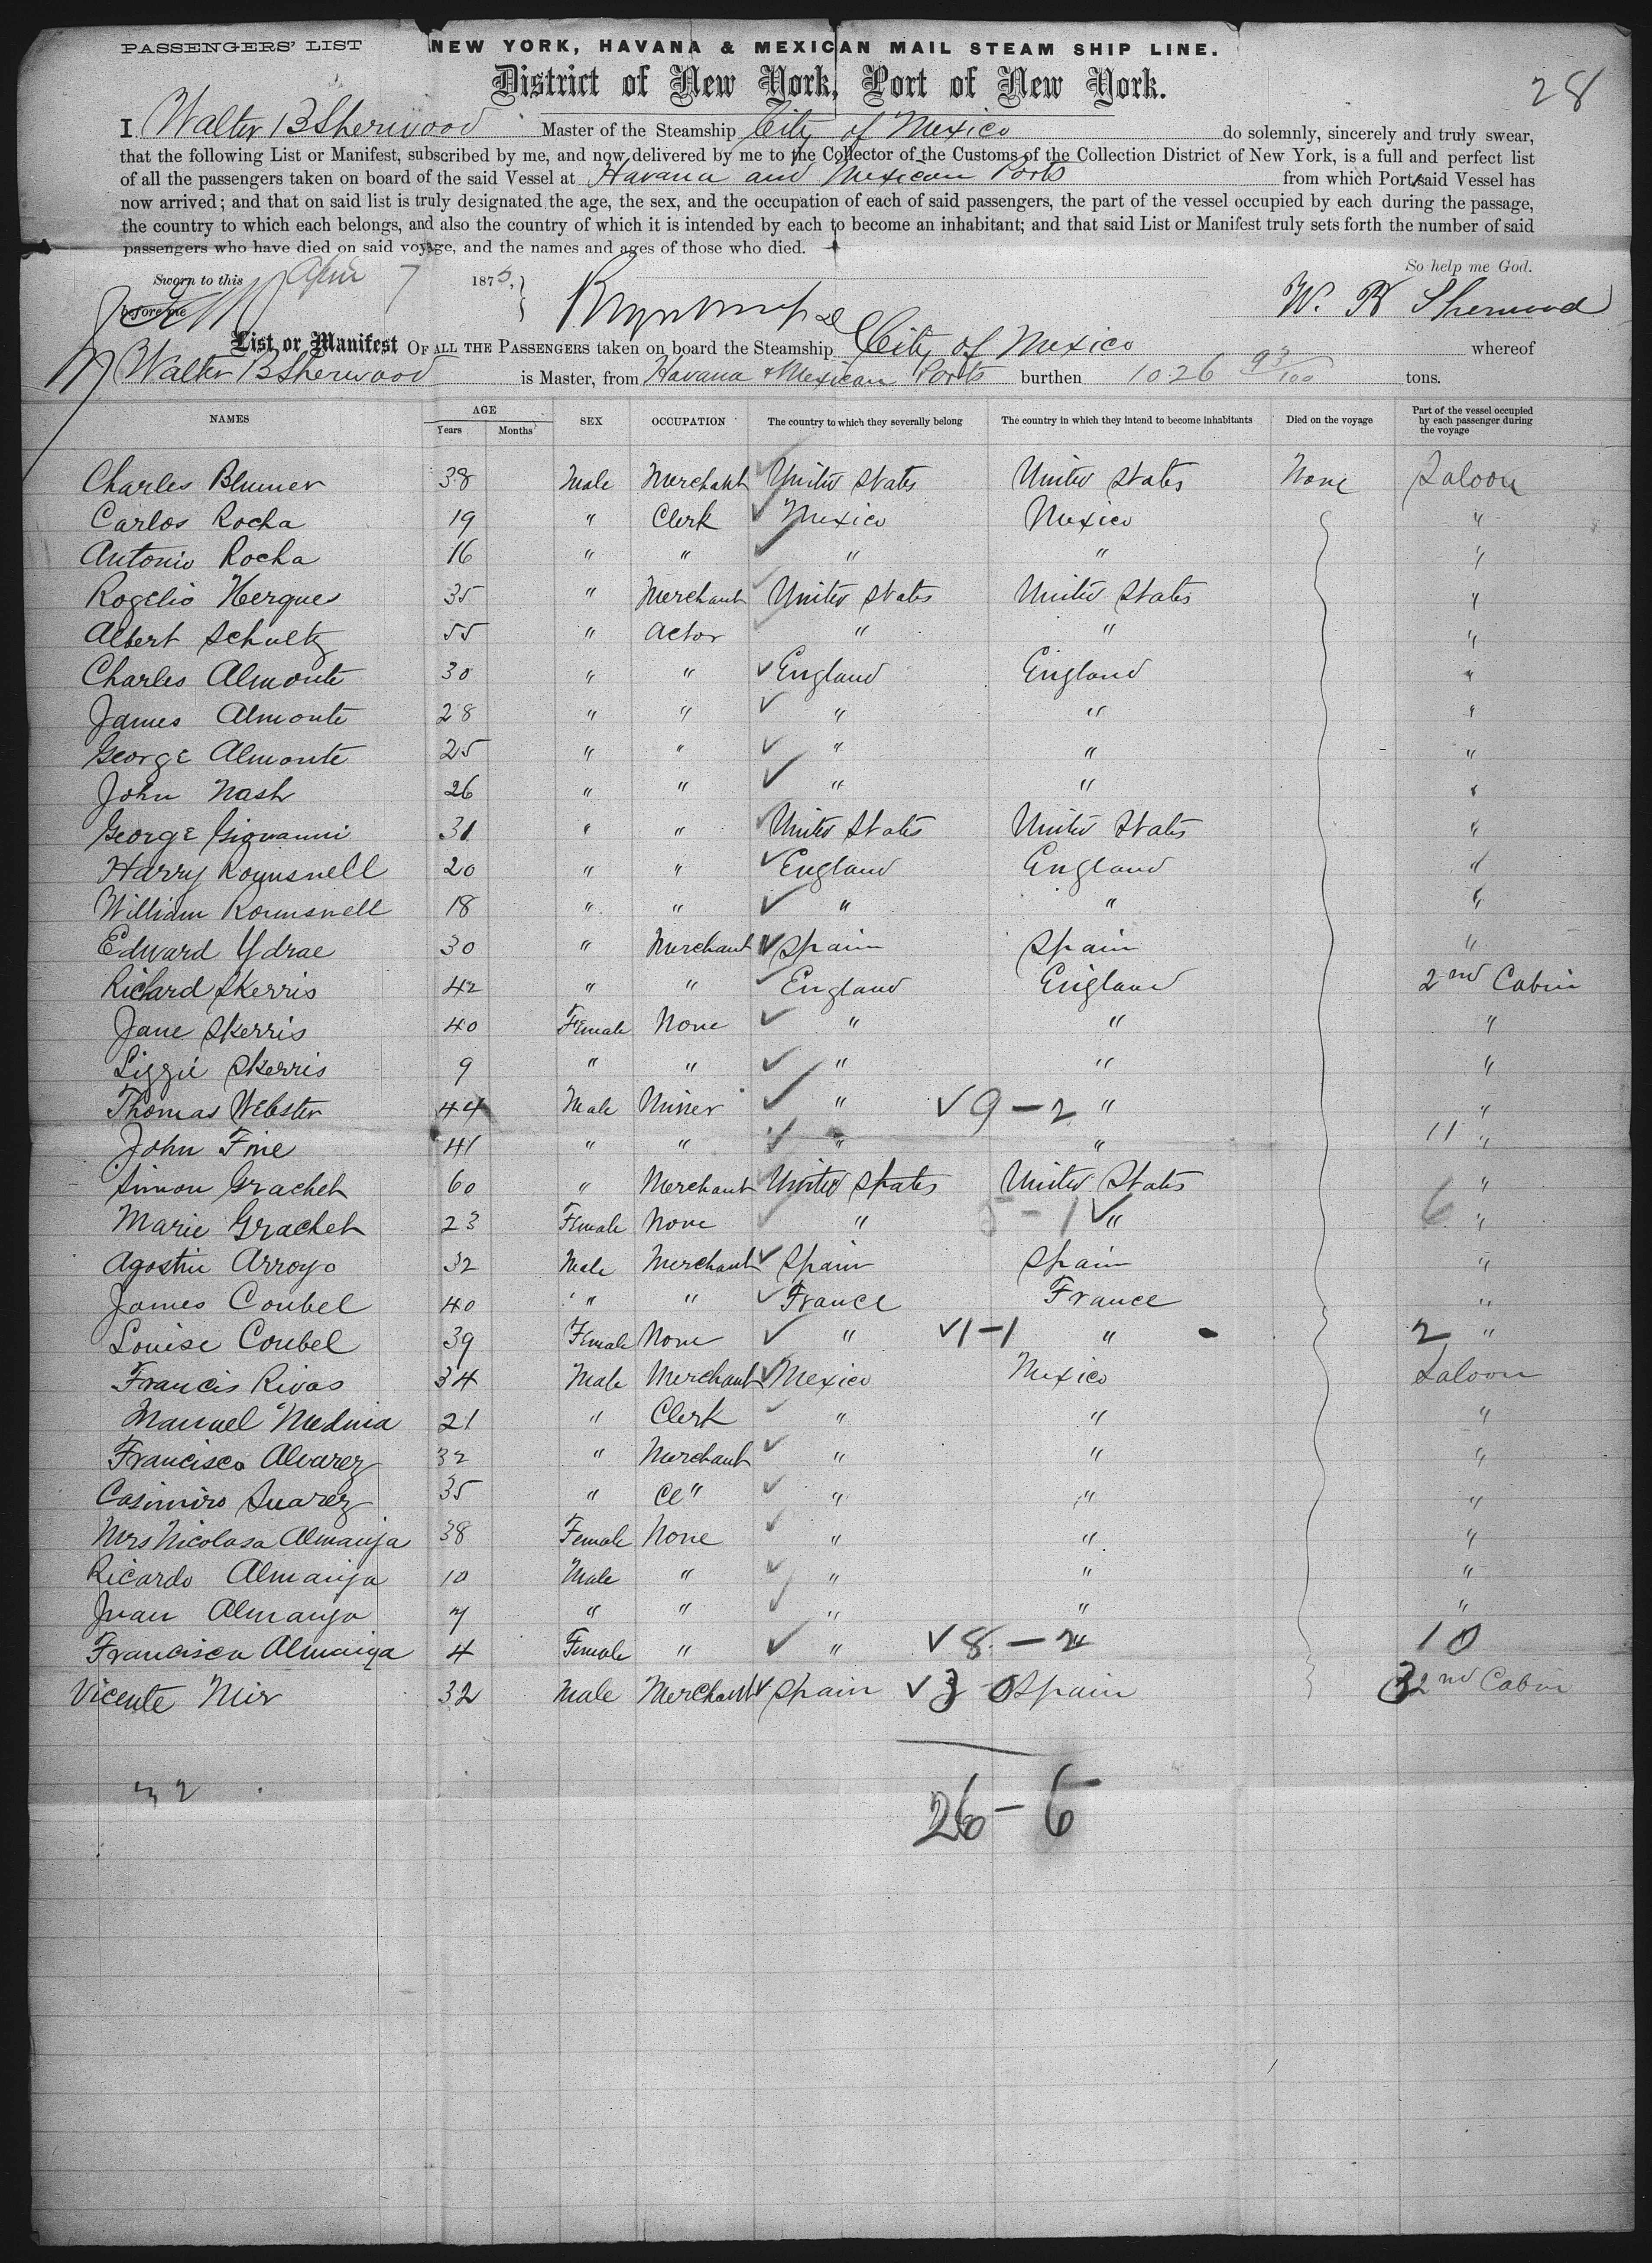 PASSENGERS' LIST
NEW YORK, HAVANA & MEXICAN MAIL STEAM SHIP LINE.
28
District of New York, Port of New York.
I Walter B Sherwood Master of the Steamship City of Mexico do solemnly, sincerely and truly swear,
that the following List or Manifest, subscribed by me, and now delivered by me to the Collector of the Customs of the Collection District of New York, is a full and perfect list
of all the passengers taken on board of the said Vessel at Havana and Mexican Ports from which Port said Vessel has
now arrived; and that on said list is truly designated the age, the sex, and the occupation of each of said passengers, the part of the vessel occupied by each during the passage,
the country to which each belongs, and also the country of which it is intended by each to become an inhabitant; and that said List or Manifest truly sets forth the number of said
passengers who have died on said voyage, and the names and ages of those who died.
So help me God.
Sworn to this April 7 1875,
before me
W. B Sherwood
List or Manifest OF ALL THE PASSENGERS taken on board the Steamship City of Mexico whereof
Walter B Sherwood is Master, from Havana & Mexican Ports burthen 1026 93/100 tons.
NAMES AGE Years Months SEX OCCUPATION The country to which they severally belong The country in which they intend to become inhabitants Died on the voyage Part of the vessel occupied by each passenger during the voyage
Charles Blumer 38 Male Merchant United States United States None Saloon
Carlos Rocha 19 " Clerk Mexico Mexico "
Antonio Rocha 16 " " " " "
Rogelio Hergues 35 " Merchant United States United States "
Albert Schultz 55 " Actor " " "
Charles Almonte 30 " " England England "
James Almonte 28 " " " " "
George Almonte 25 " " " " "
John Nash 26 " " " " "
George Giovanni 31 " " United States United States "
Harry Rounsnell 20 " " England England "
William Rounsnell 18 " " " " "
Edward Ydrae 30 " Merchant Spain Spain "
Richard Skerris 42 " " England England 2nd Cabin
Jane Skerris 40 Female None " " "
Lizzie Skerris 9 " " " " "
Thomas Webster 44 Male Miner " ✓ 9 - 2 " "
John Fine 41 " " " " 11 "
Simon Grachet 60 " Merchant United States United States "
Marie Grachet 23 Female None " 5 - 1 ✓ " 6 "
Agostin Arroyo 32 Male Merchant Spain Spain "
James Coubel 40 " " France France "
Louise Coubel 39 Female None " ✓ 1-1 " 2 "
Francis Rivas 34 Male Merchant Mexico Mexico Saloon
Manuel Medina 21 " Clerk " " "
Francisco Alvarez 32 " Merchant " " "
Casimiro Suarez 35 " Cl" " " "
Mrs Nicolasa Almanja 38 Female None " " "
Ricardo Almanja 10 Male " " " "
Juan Almanja 7 " " " " "
Francisca Almanja 4 Female " " ✓ 8 - 2 " 10
Vicente Mir 32 Male Merchant Spain ✓ 3 0 Spain 3 2nd Cabin
32
26 - 6